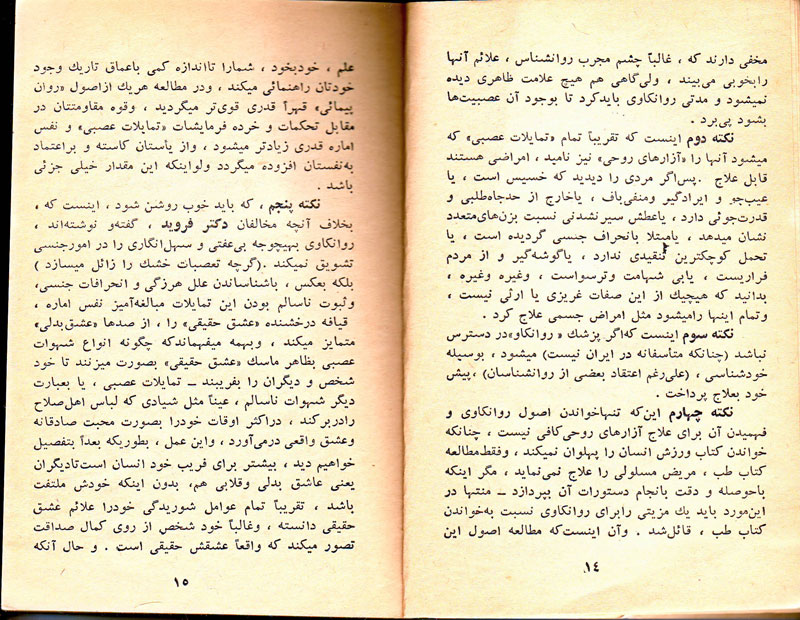 مخفی دارند که ، غالباً چشم مجرب روانشناس ، علائم آنها
رابخوبی می‌بیند ، ولی‌گاهی هم هیچ علامت ظاهری دیده
نمیشود و مدتی روانکاوی بایدکرد تا بوجود آن عصبیت‌ها
بشود پی‌برد .
نکته دوم اینست که تقریباً تمام «تمایلات عصبی» که
میشود آنها را «آزارهای روحی» نیز نامید ، امراضی هستند
قابل علاج . پس‌اگر مردی را دیدید که خسیس است ، یا
عیب‌جو و ایرادگیر ومنفی‌باف ، یاخارج از حدجاه‌طلبی و
قدرت‌جوئی دارد ، یاعطش سیرنشدنی نسبت بزن‌های‌متعدد
نشان میدهد ، یامبتلا بانحراف جنسی گردیده است ، یا
تحمل کوچکترین تنقیدی ندارد ، یاگوشه‌گیر و از مردم
فراریست ، یابی شهامت وترسواست ، وغیره وغیره ،
بدانید که هیچیك از این صفات غریزی یا ارثی نیست ،
وتمام اینها رامیشود مثل امراض جسمی علاج کرد .
نکته سوم اینست که‌اگر پزشك « روانکاو»در دسترس
نباشد (چنانکه متأسفانه در ایران نیست) میشود ، بوسیله
خودشناسی ، (علی‌رغم اعتقاد بعضی از روانشناسان) ،پیش
خود بعلاج پرداخت .
نکته چهارم این‌که تنهاخواندن اصول روانکاوی و
فهمیدن آن برای علاج آزارهای روحی‌کافی نیست ، چنانکه
خواندن کتاب ورزش انسان را پهلوان نمیکند ، وفقط‌مطالعه
کتاب طب ، مریض مسلولی را علاج نمی‌نماید ، مگر اینکه
باحوصله و دقت بانجام دستورات آن بپردازد ــ منتها در
این‌مورد باید یك مزیتی رابرای روانکاوی نسبت به‌خواندن
کتاب طب ، قائل‌شد . وآن اینست‌که مطالعه اصول این
۱٤
علم ، خودبخود ، شمارا تااندازه کمی باعماق تاریك وجود
خودتان راهنمائی میکند ، ودر مطالعه هریك ازاصول «روان
پیمائی» قهراً قدری قوی‌تر میگردید ، وقوه مقاومتتان در
مقابل تحکمات و خرده فرمایشات «تمایلات عصبی» و نفس
اماره قدری زیادتر میشود ، واز یأستان کاسته و براعتماد
به‌نفستان افزوده میگردد ولواینکه این مقدار خیلی جزئی
باشد .
نکته پنجم ، که باید خوب روشن شود ، اینست که ،
بخلاف آنچه مخالفان دکتر فروید ، گفته‌و نوشته‌اند ،
روانکاوی بهیچوجه بی‌عفتی و سهل‌انگاری را در امورجنسی
تشویق نمیکند .(گرچه تعصبات خشك را زائل میسازد )
بلکه بعکس ، باشناساندن علل هرزگی و انحرافات جنسی،
وثبوت ناسالم بودن این تمایلات مبالغه‌آمیز نفس اماره ،
قیافه درخشنده «عشق حقیقی» را ، از صدها «عشق‌بدلی»
متمایز میکند ، وبهمه میفهماندکه چگونه انواع شهوات
عصبی بظاهر ماسك «عشق حقیقی» بصورت میزنند تا خود
شخص و دیگران را بفریبند ــ تمایلات عصبی ، یا بعبارت
دیگر شهوات ناسالم ، عیناً مثل شیادی که لباس اهل‌صلاح
رادربرکند ، دراکثر اوقات خودرا بصورت محبت صادقانه
وعشق واقعی درمی‌آورد ، واین عمل ، بطوریکه بعداً بتفصیل
خواهیم دید ، بیشتر برای فریب خود انسان است‌تادیگران
یعنی عاشق بدلی وقلابی هم، بدون اینکه خودش ملتفت
باشد ، تقریباً تمام عوامل شوریدگی خودرا علائم عشق
حقیقی دانسته ، وغالباً خود شخص از روی کمال صداقت
تصور میکند که واقعاً عشقش حقیقی است . و حال آنکه
۱٥